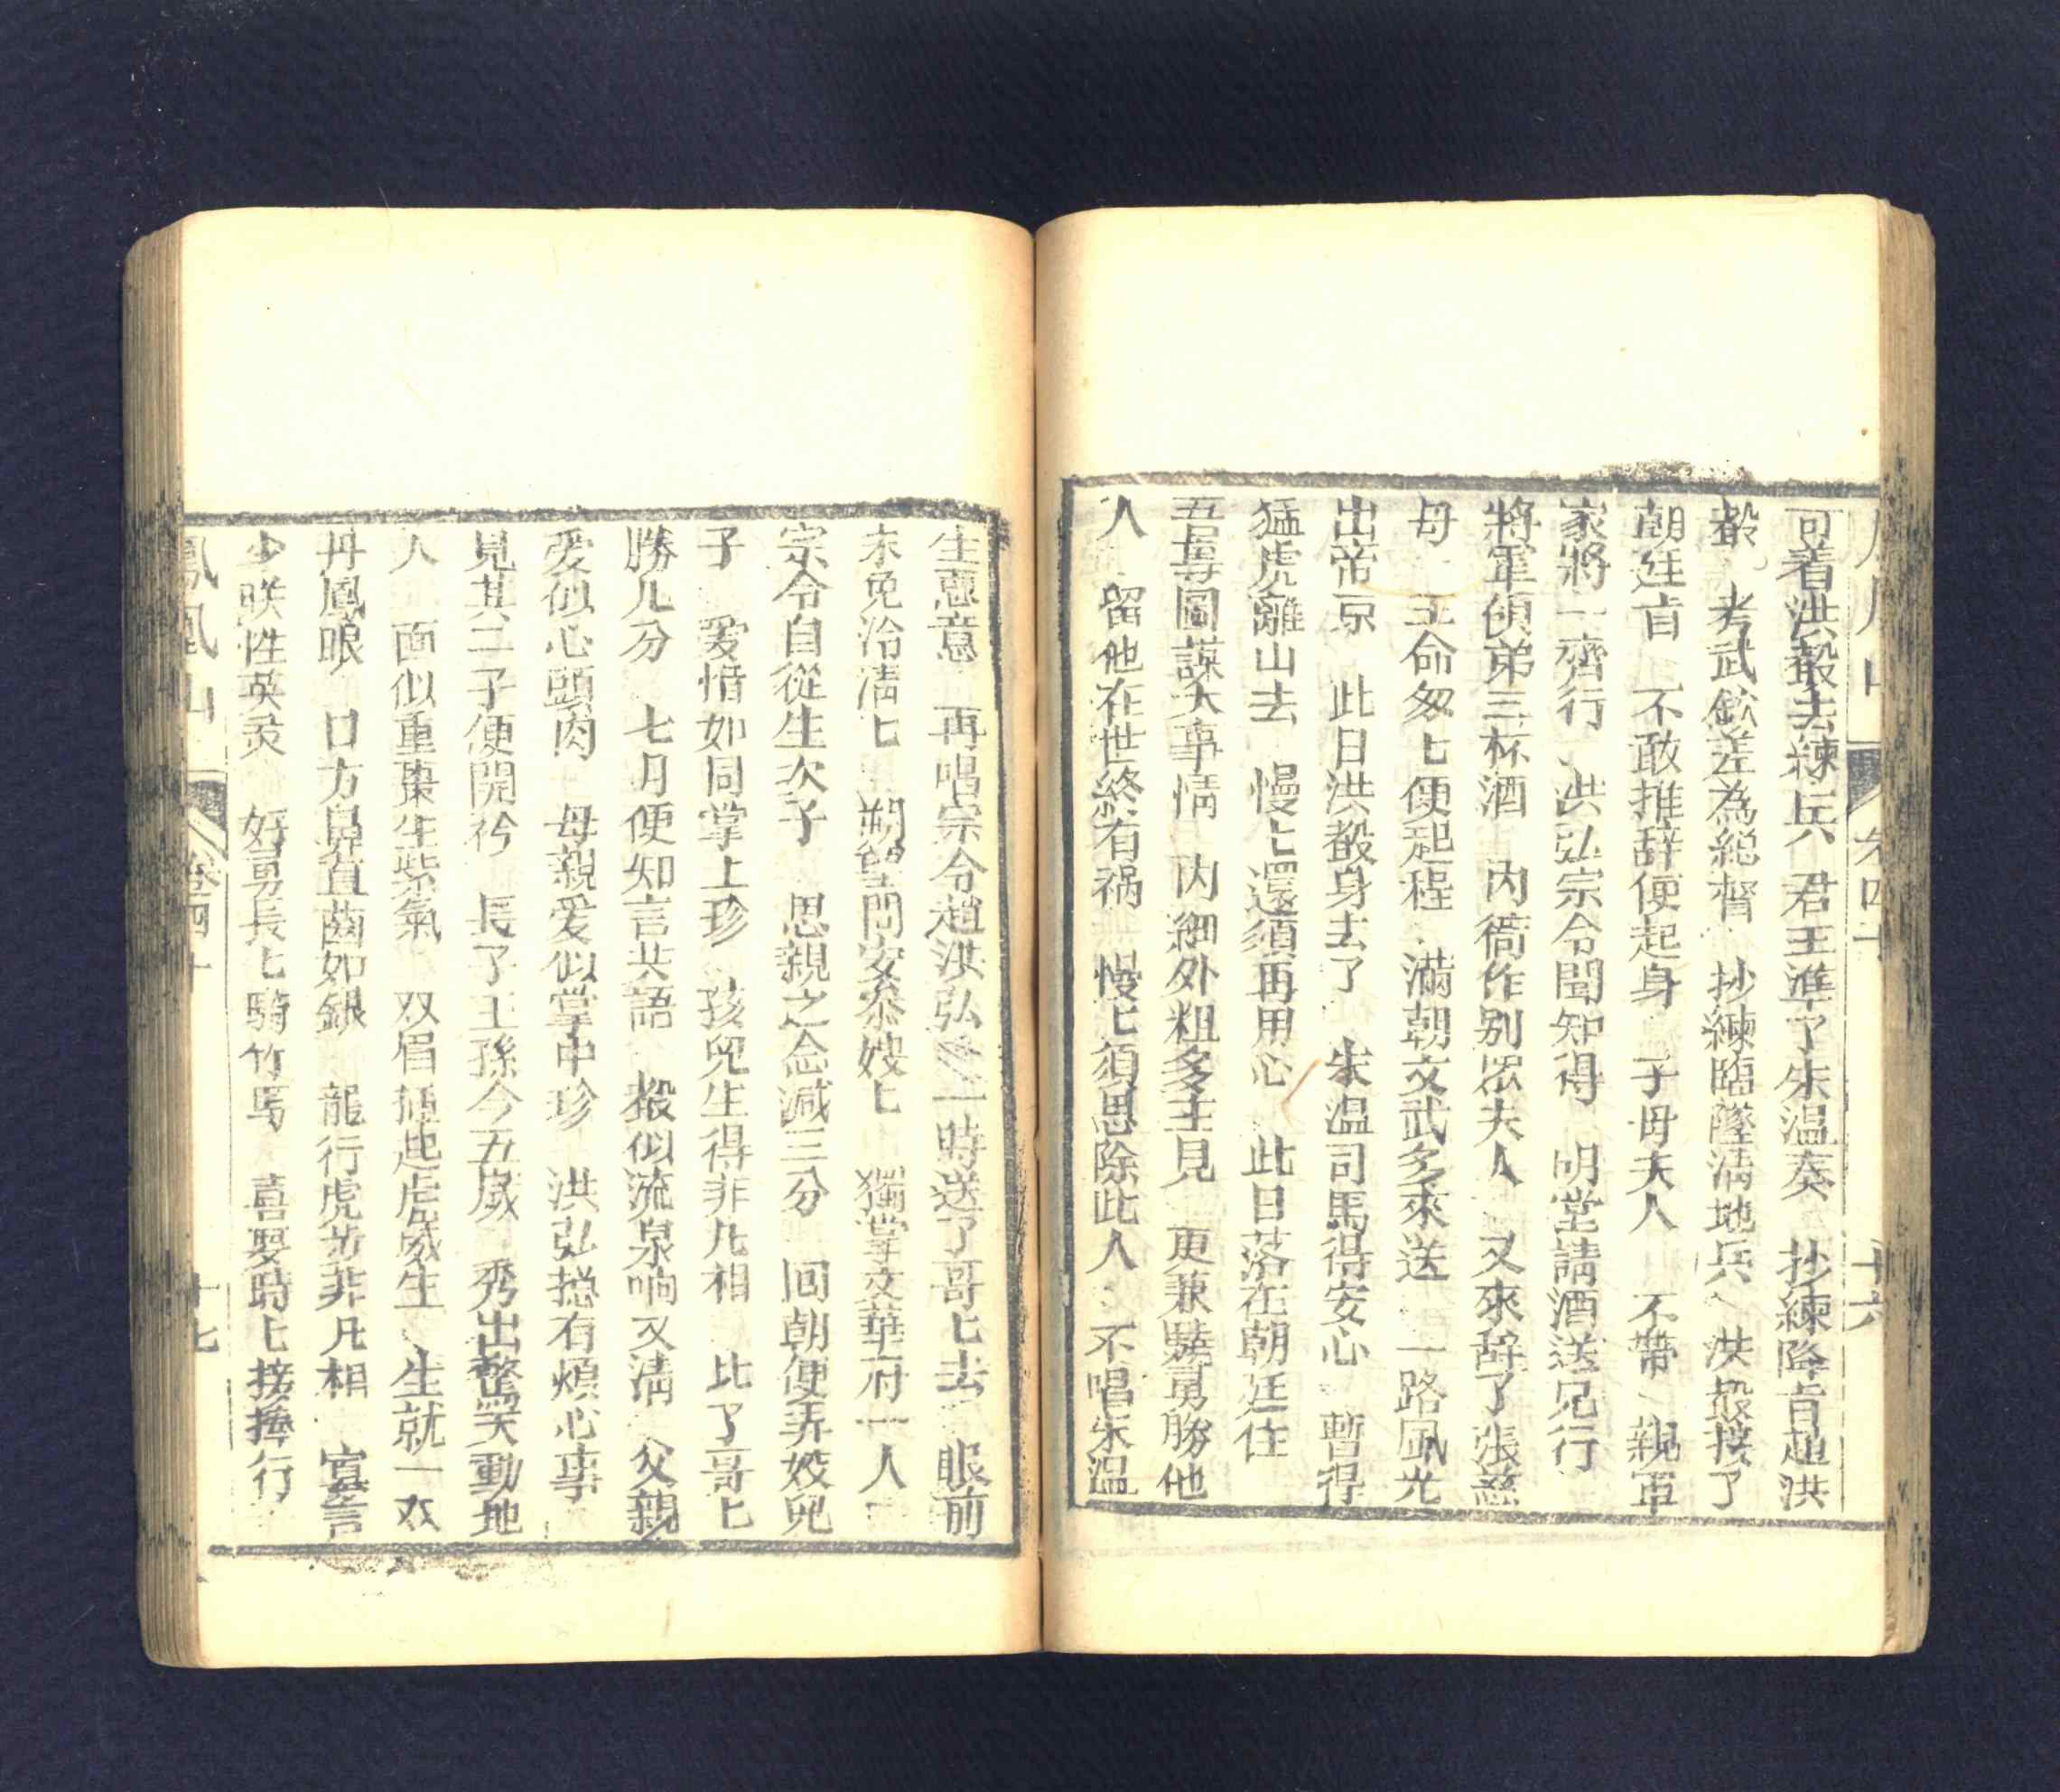 可着洪殽去練兵　君王準了朱温奏　抄練降旨趙洪
殽。考武欽差為総督　抄練臨墜淸地兵　洪殽接了
朝廷旨　不敢推辞便起身　子毋夫人　不帶　親軍
家將一齊行　洪弘宗令聞知得　明堂請酒送兄行
將軍傾弟三杯酒　内衙作别衆夫人　又來辞了張慈
毋　王命匆匕便起程　滿朝文武多來送　一路風光
出帝京　此日洪殽身去了　朱温司馬得安心　暫得
猛虎離山去　慢匕還須再用心　此日落在朝廷住
吾尋圖謀大事情　内細外粗多主見　更兼驍勇勝他
人　留他在世終有禍　慢匕須思除此人　不唱朱温
卷四十
十六
生惡意　再唱宗令趙洪弘　一時送了哥匕去　眼前
未免冷清匕　朔望問安泰嫂匕　獨掌文華府一人
宗令自從生次子　思親之念減三分　回朝便弄姣兒
子　愛惜如同掌上珍　孩兒生得非凡相　比了哥匕
勝几分　七月便知言共語　殽似流泉响又淸　父親
愛似心頭肉　母親爱似掌中珍　洪弘揔有煩心事
見其二子便開衿　長了王孫今五嵗　秀出驚天動地
人　面似重棗生紫氣　双眉插起虎威生　生就一双
丹鳳眼　口方鼻直齒如銀　龍行虎步非凡相　寡言
少咲性英灵　好勇長匕騎竹馬　喜娶時匕接擡行
鳳凰山
卷四十
十七